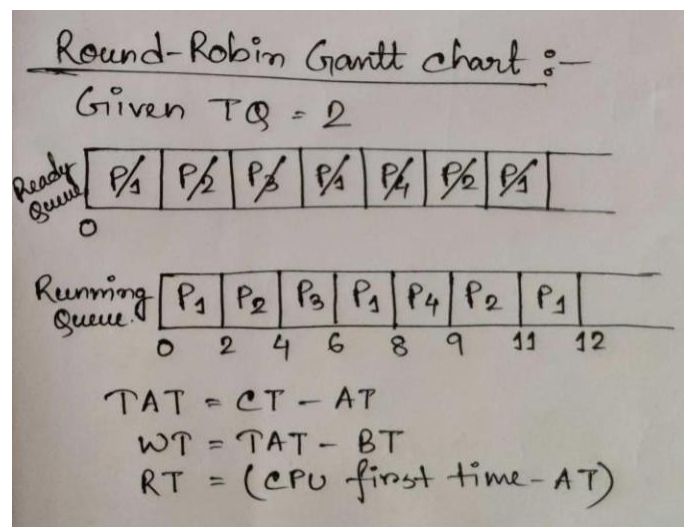 Round-Robin Gantt chart :-
Given TQ = 2
Ready Queue P1 P2 P3 P1 P4 P2 P1
0
Running Queue. P1 P2 P3 P1 P4 P2 P1
0 2 4 6 8 9 11 12
TAT = CT - AT
WT = TAT - BT
RT = (CPU first time - AT)